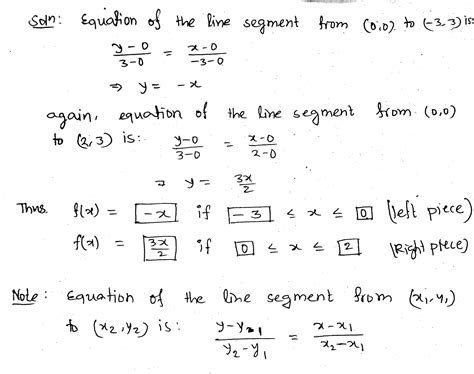 Soln: Equation of the line segment from (0,0) to (-3,3) is:
y-0/3-0 = x-0/-3-0
⇒ y = -x
again, equation of the line segment from (0,0)
to (2,3) is: y-0/3-0 = x-0/2-0
⇒ y = 3x/2
Thus. f(x) = -x if -3 ≤ x ≤ 0 (left piece)
f(x) = 3x/2 if 0 ≤ x ≤ 2 (Right piece)
Note: Equation of the line segment from (x1,y1)
to (x2,y2) is: y-y1/y2-y1 = x-x1/x2-x1